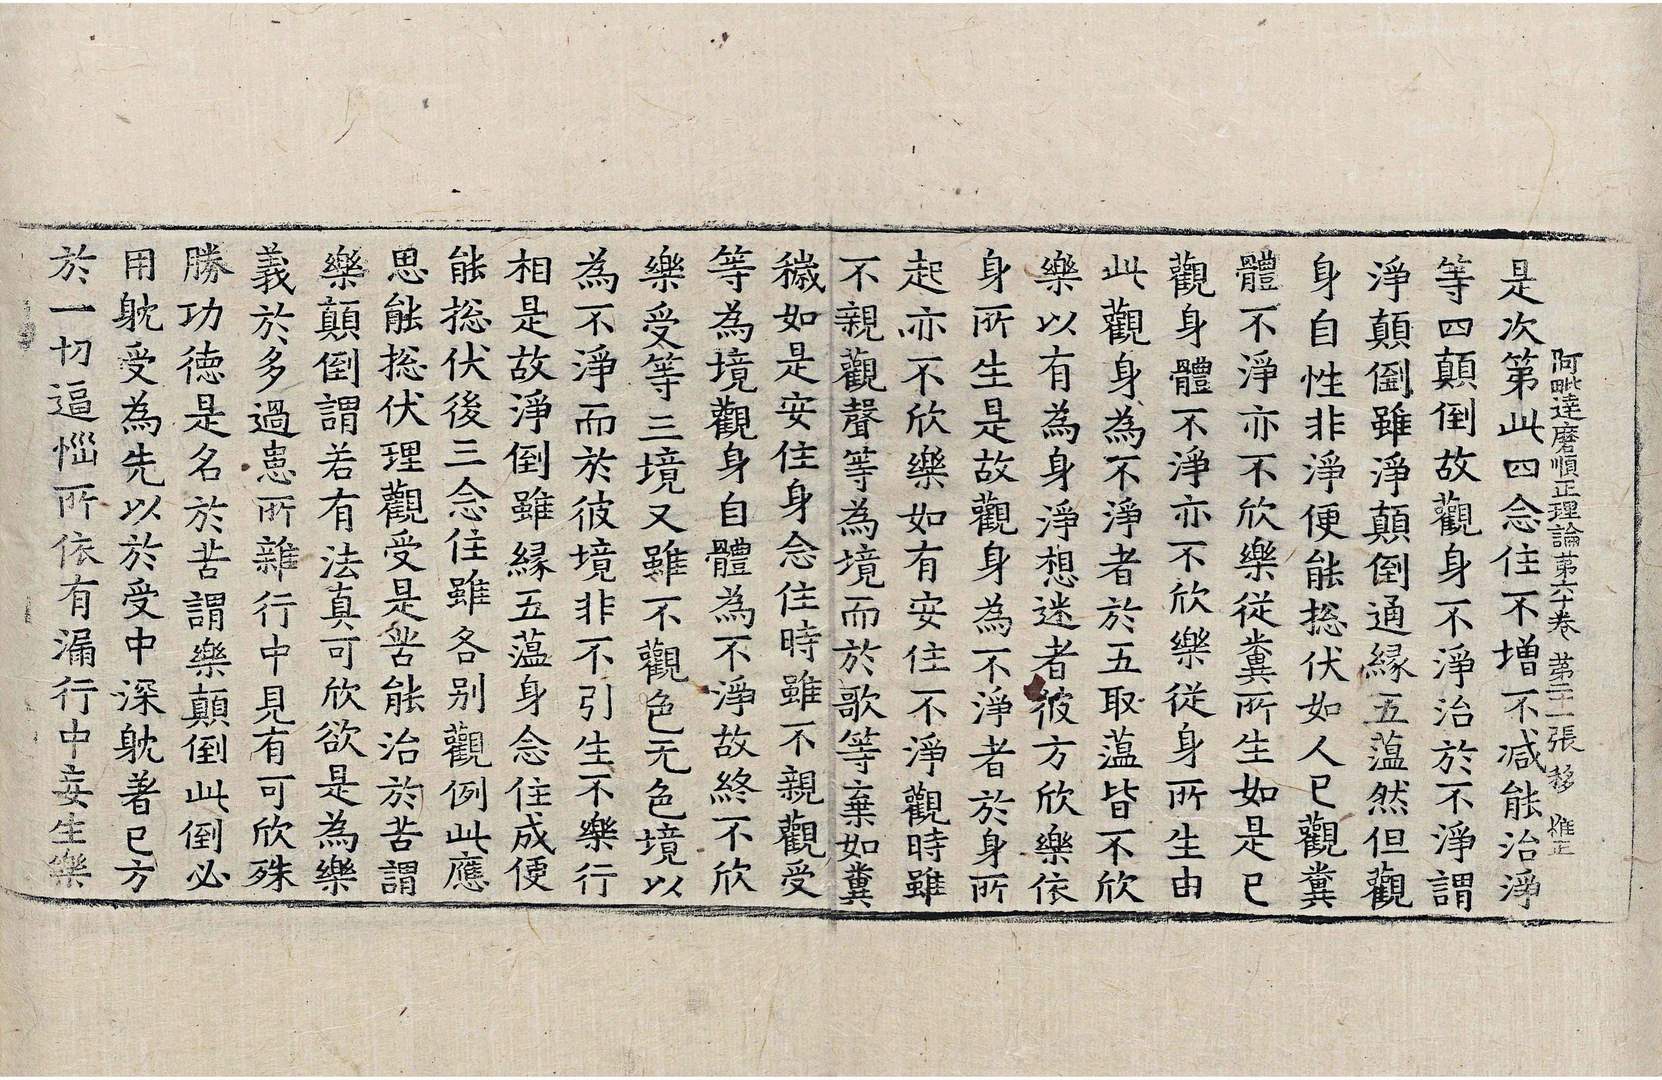 阿毗達磨順正理論第六十卷 第二一張 移
是次第此四念住不增不減能治淨
等四顛倒故觀身不淨治於不淨謂
淨顛倒雖淨顛倒通緣五蕰然但觀
身自性非淨便能捴伏如人已觀糞
體不淨亦不欣樂從糞所生如是已
觀身體不淨亦不欣樂從身所生由
此觀身為不淨者於五取蕰皆不欣
樂以有為身淨想迷者彼方欣樂依
身所生是故觀身為不淨者於身所
起亦不欣樂如有安住不淨觀時雖
不親觀聲等為境而於歌等棄如糞
穢如是安住身念住時雖不親觀受
等為境觀身自體為不淨故終不欣
樂受等三境又雖不觀色无色境以
為不淨而於彼境非不引生不樂行
相是故淨倒雖緣五蕰身念住成便
能捴伏後三念住雖各別觀例此應
思能捴伏理觀受是苦能治於苦謂
樂顛倒謂若有法真可欣欲是為樂
義於多過患所雜行中見有可欣殊
勝功德是名於苦謂樂顛倒此倒必
用躭受為先以於受中深躭著已方
於一切逼惱所依有漏行中妄生樂